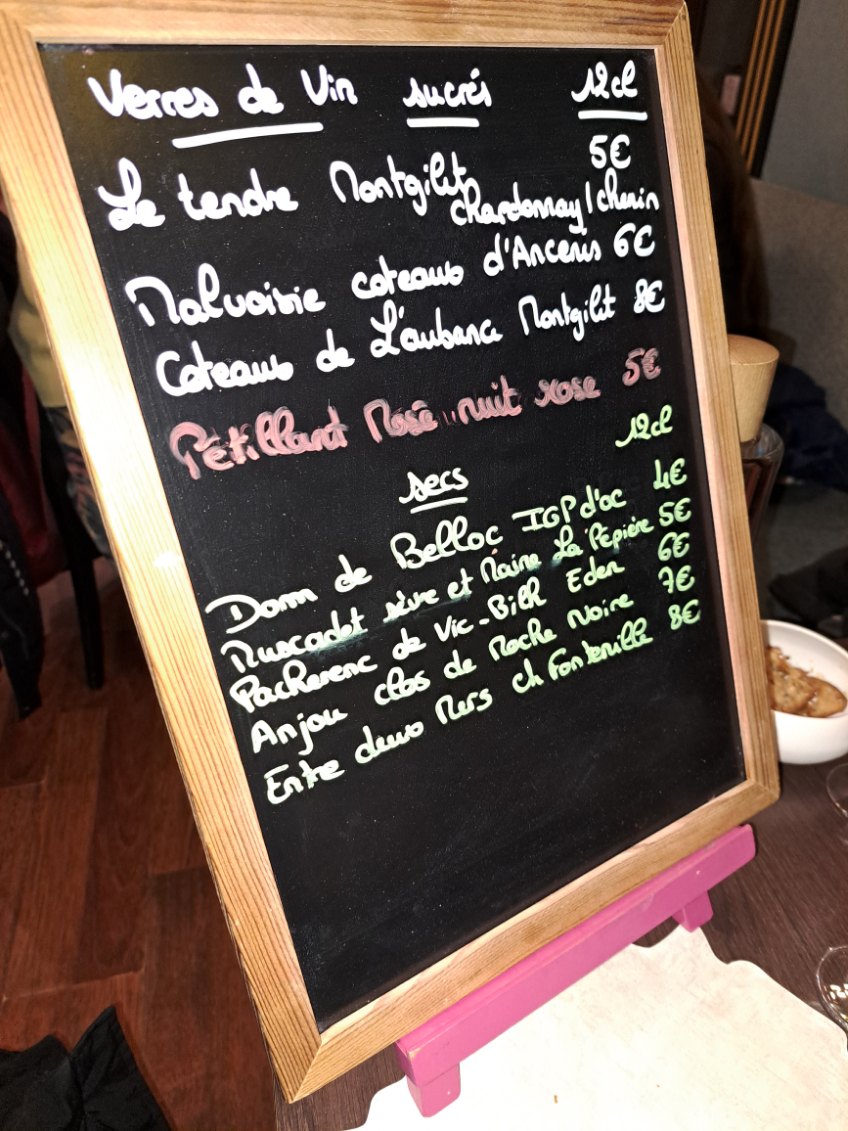 Verres de Vin sucrés 12cl
Le tendre Montgilet 5€
chardonnay/chenin
Malvoisie coteaux d'Ancenis 6€
Coteaux de L'aubance Montgilet 8€
Pétillant Rosé nuit rose 5€
12cl
secs
Dom de Belloc IGP d'oc 4€
Muscadet sèvre et Maine La Pépière 5€
Pacherenc de Vic-Bilh Eden 6€
Anjou clos de Roche Noire 7€
Entre deux Mers ch Fontenille 8€